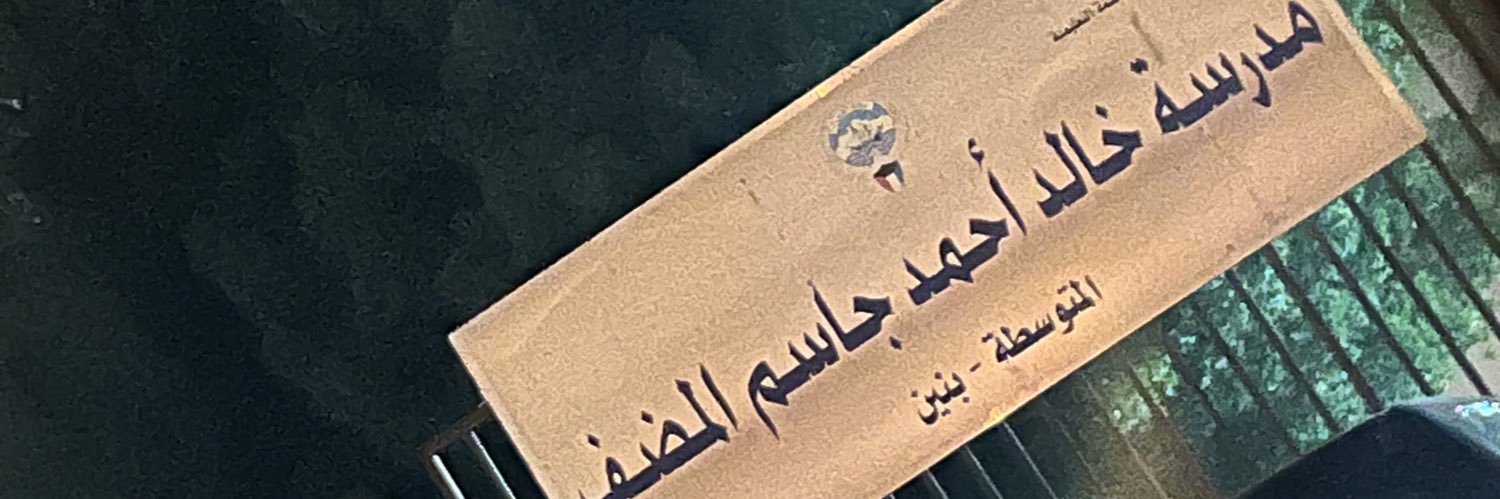 مدرسة خالد أحمد جاسم المضف
المتوسطة - بنين